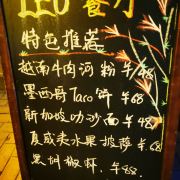 LEO 餐厅
特色推荐
越南牛肉河粉 ¥48
墨西哥Taco饼 ¥68
新加坡叻沙面 ¥48
夏威夷水果披萨 ¥58
黑胡椒虾 ¥88